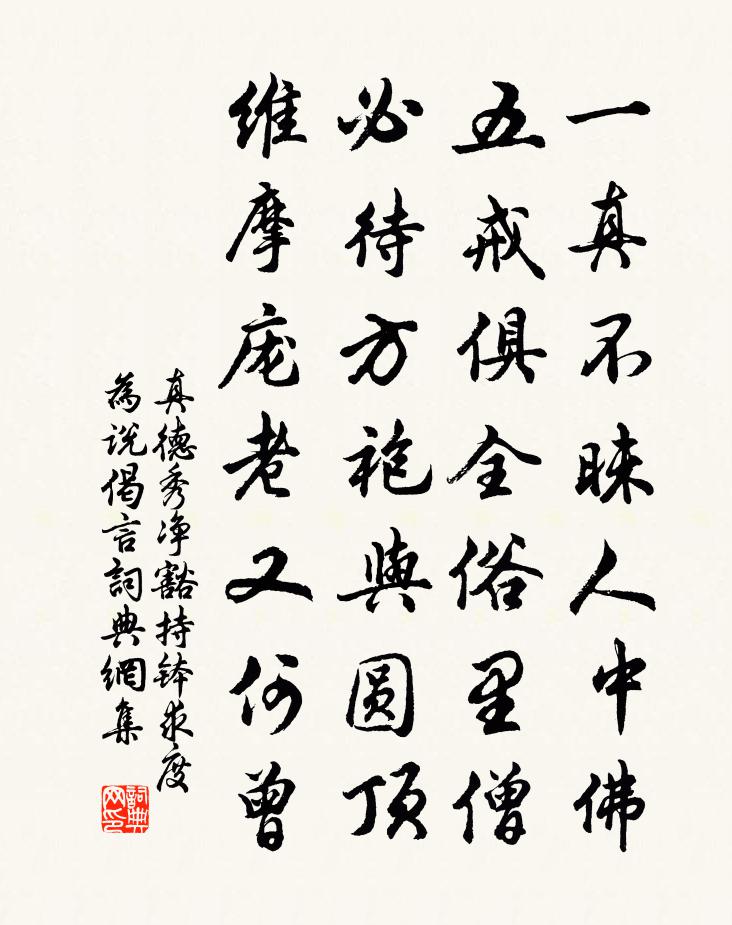 一真不昧人中佛
五戒俱全俗里僧
必待方袍與圆顶
維摩庞老又何曾
真德秀净豁持钵求度
為说偈言詞典網集
詞典网印